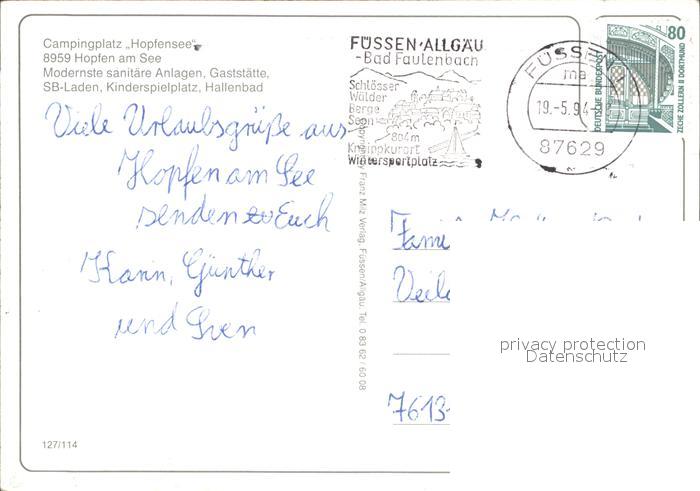 Campingplatz „Hopfensee“
8959 Hopfen am See
Modernste sanitäre Anlagen, Gaststätte,
SB-Laden, Kinderspielplatz, Hallenbad
Viele Urlaubsgrüße aus
Hopfen am See
senden Euch
Karin, Günther
und Sven
127/114
FÜSSEN·ALLGÄU
-Bad Faulenbach
Schlösser
Wälder
Berge
Seen
804m
Kneippkurort
Wintersportplatz
Franz Milz Verlag, Füssen/Allgäu, Tel. 0 83 62 / 60 08
FÜSSEN
ma
19.-5.94
87629
80
DEUTSCHE BUNDESPOST
ZECHE ZOLLERN II DORTMUND
Fami
Veile
7613
privacy protection
Datenschutz